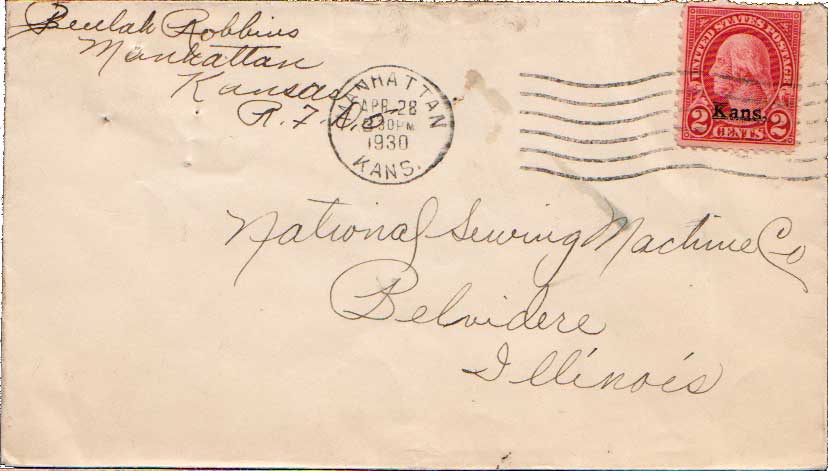 Beulah Robbins
Manhattan
Kansas
R.F.D.
MANHATTAN
APR 28
30PM
1930
KANS.
UNITED STATES POSTAGE
Kans.
2 CENTS 2
National Sewing Machine Co
Belvidere
Illinois